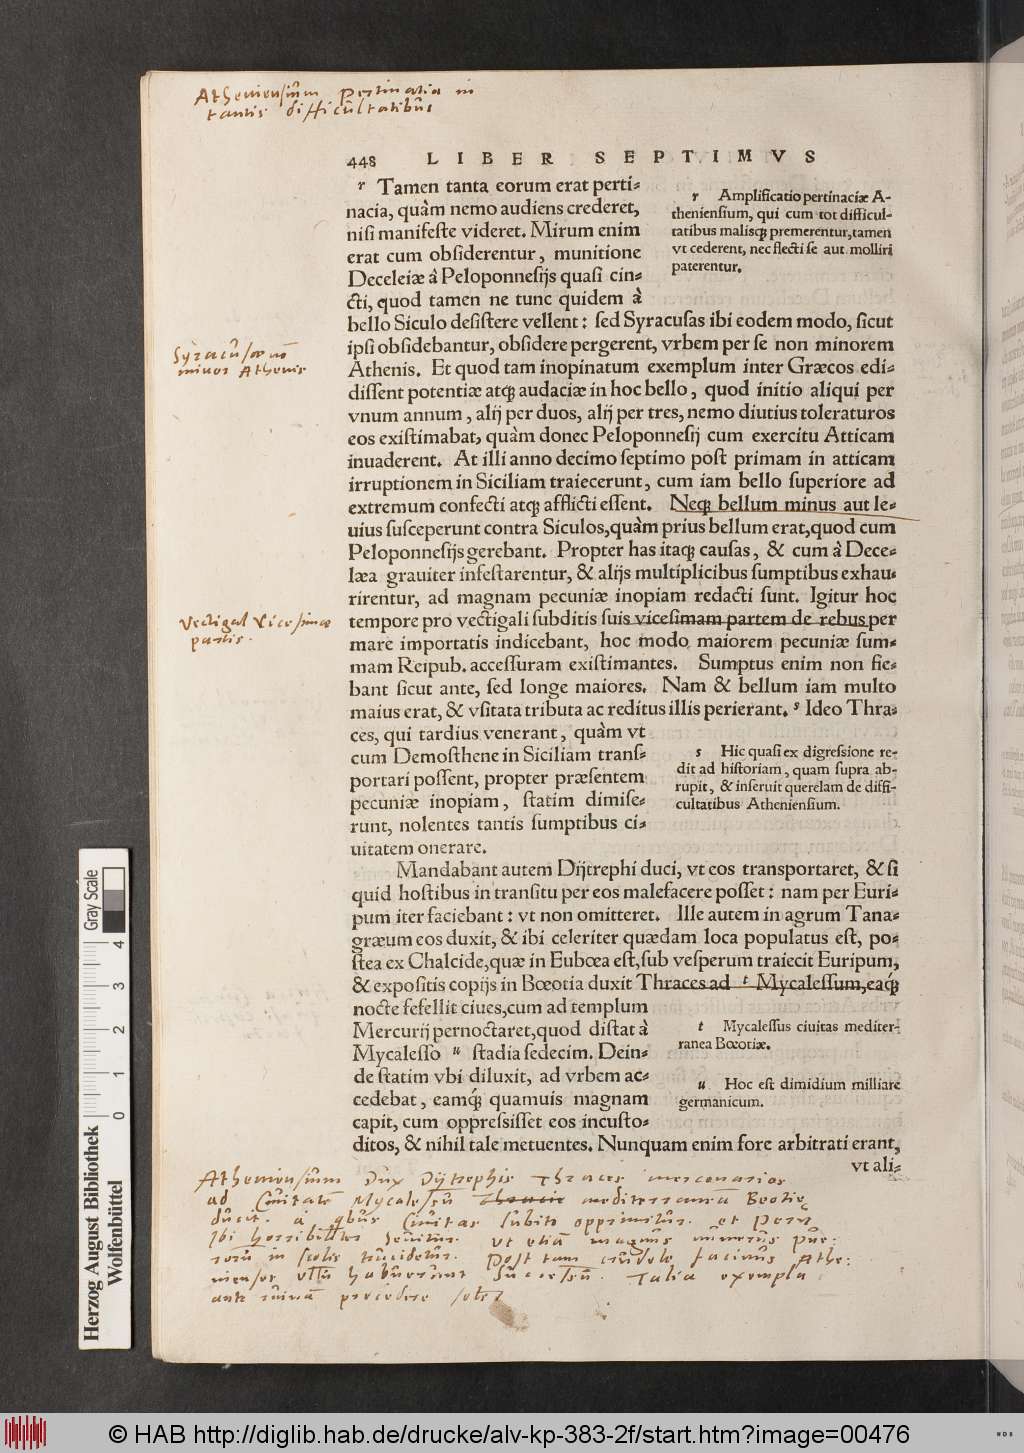 Atheniensium pertinatia in
tantis difficultatibus
448 LIBER SEPTIMVS
r Tamen tanta eorum erat perti-
nacia, quàm nemo audiens crederet,
nisi manifeste videret. Mirum enim
erat cum obsiderentur, munitione
Deceleiæ à Peloponnesijs quasi cin-
cti, quod tamen ne tunc quidem à
bello Siculo desistere vellent: sed Syracusas ibi eodem modo, sicut
ipsi obsidebantur, obsidere pergerent, vrbem per se non minorem
Athenis. Et quod tam inopinatum exemplum inter Græcos edi-
dissent potentiæ atq; audaciæ in hoc bello, quod initio aliqui per
vnum annum, alij per duos, alij per tres, nemo diutius toleraturos
eos existimabat, quàm donec Peloponnesij cum exercitu Atticam
inuaderent. At illi anno decimo septimo post primam in atticam
irruptionem in Siciliam traiecerunt, cum iam bello superiore ad
extremum confecti atq; afflicti essent. Neq; bellum minus aut le-
uius susceperunt contra Siculos, quàm prius bellum erat, quod cum
Peloponnesijs gerebant. Propter has itaq; causas, & cum à Dece-
læa grauiter infestarentur, & alijs multiplicibus sumptibus exhau-
rirentur, ad magnam pecuniæ inopiam redacti sunt. Igitur hoc
tempore pro vectigali subditis suis vicesimam partem de rebus per
mare importatis indicebant, hoc modo maiorem pecuniæ sum-
mam Reipub. accessuram existimantes. Sumptus enim non fie-
bant sicut ante, sed longe maiores. Nam & bellum iam multo
maius erat, & vsitata tributa ac reditus illis perierant. s Ideo Thra-
ces, qui tardius venerant, quàm vt
cum Demosthene in Siciliam trans-
portari possent, propter præsentem
pecuniæ inopiam, statim dimise-
runt, nolentes tantis sumptibus ci-
uitatem onerare.
Mandabant autem Dijtrephi duci, vt eos transportaret, & si
quid hostibus in transitu per eos malefacere posset: nam per Euri-
pum iter faciebant: vt non omitteret. Ille autem in agrum Tana-
græum eos duxit, & ibi celeriter quædam loca populatus est, po-
stea ex Chalcide, quæ in Eubœa est, sub vesperum traiecit Euripum,
& expositis copijs in Bœotia duxit Thraces ad t Mycalessum, eaq́;
nocte fefellit ciues, cum ad templum
Mercurij pernoctaret, quod distat à
Mycalesso u stadia sedecim. Dein-
de statim vbi diluxit, ad vrbem ac-
cedebat, eamq́; quamuis magnam
capit, cum oppressisset eos incusto-
ditos, & nihil tale metuentes. Nunquam enim fore arbitrati erant,
vt ali-
r Amplificatio pertinaciæ A-
theniensium, qui cum tot difficul-
tatibus malisq; premerentur, tamen
vt cederent, nec flecti se aut molliri
paterentur.
Syracusæ nō
minor Athenis
Vectigal Vicesimæ
partis.
s Hic quasi ex digressione re-
dit ad historiam, quam supra ab-
rupit, & inseruit querelam de diffi-
cultatibus Atheniensium.
t Mycalessus ciuitas mediter-
ranea Bœotiæ.
u Hoc est dimidium milliare
germanicum.
Atheniensium Dux Dijtrephis Thraces mercenarios
ad Ciuitatē Mycalessū Thracie mediterraneā Beotię
ducit. a qbus Ciuitas subito opprimitur. et
Ibi horribiliter seuitur. ut etiā magnus numerus pue:
rorū in scolis trucidetur. Post tam crudele facinus Athe:
nienses habuerunt Successū. Talia exempla
ante ruinā precedere solet
Herzog August Bibliothek
Wolfenbüttel
0 1 2 3 4
Gray Scale
© HAB http://diglib.hab.de/drucke/alv-kp-383-2f/start.htm?image=00476